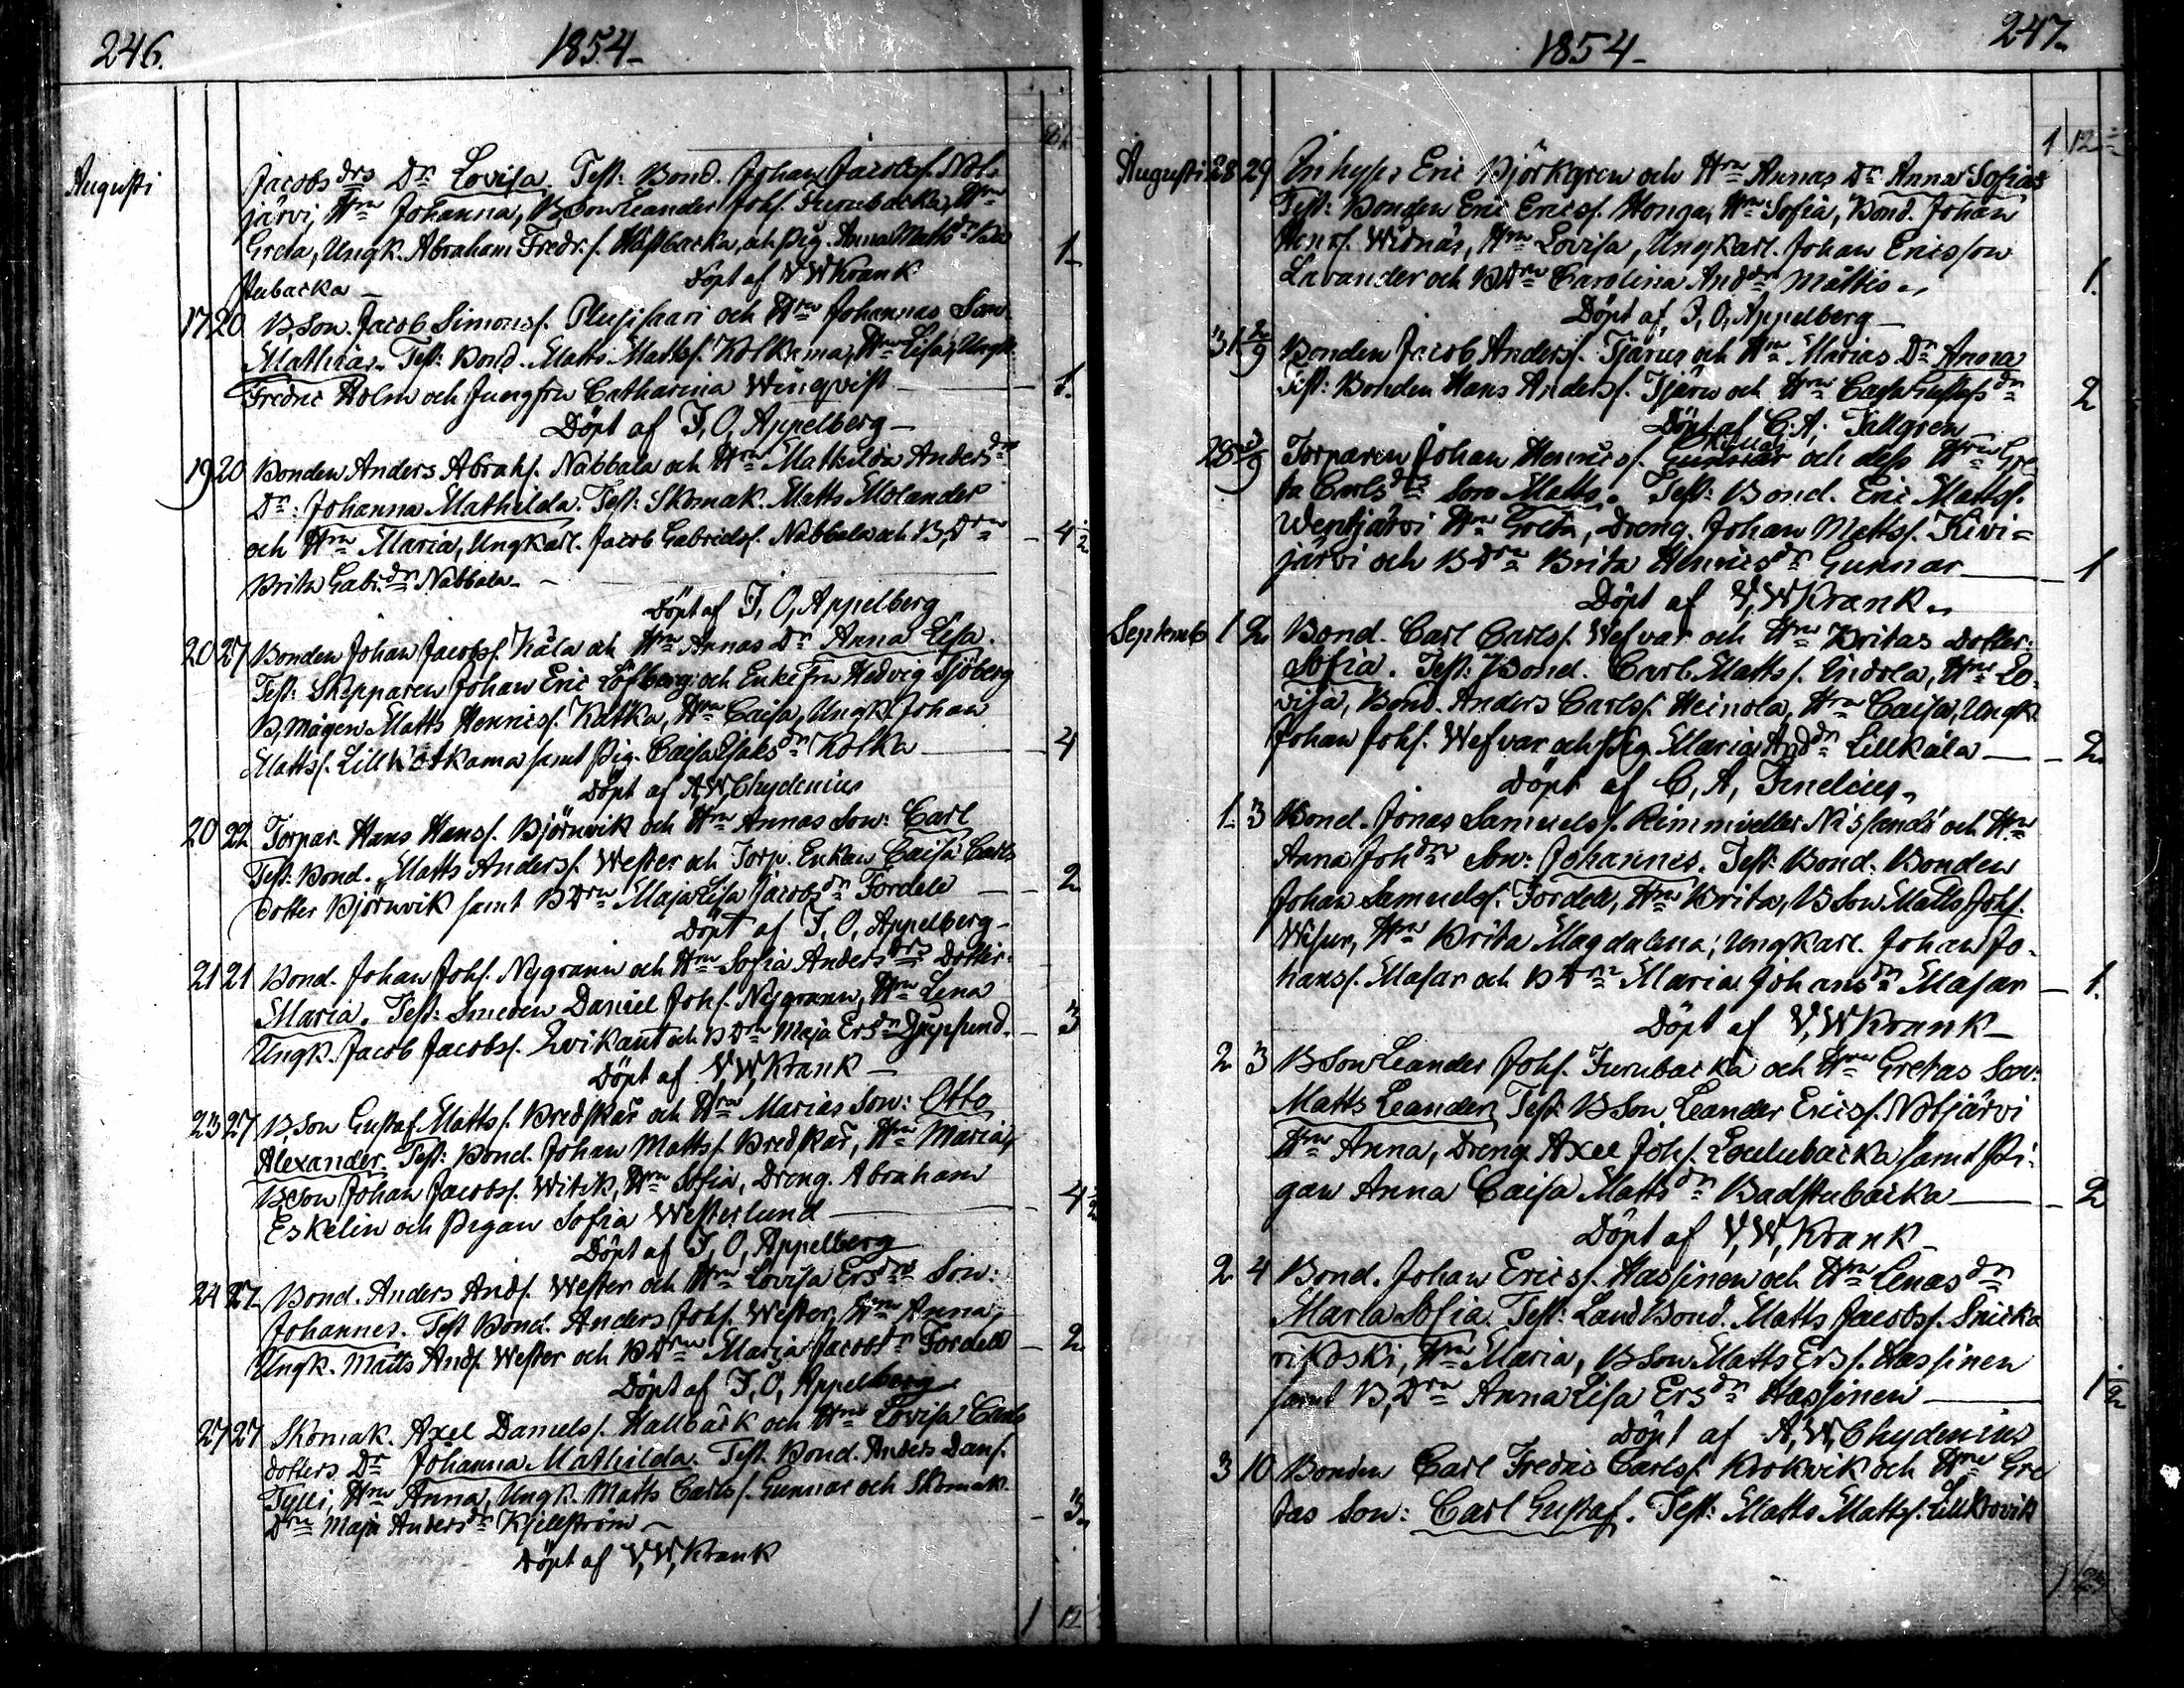 246. 1854-
Augusti
Jacobs drs Dr Lovisa. Test: Bond. Johan Jacobss. Nol-
järvi, Hru Johanna, BSon Leander Johs. Furubacka, Hru
Greta, Ungk. Abraham Fredr.s. Hästbacka, och Pig. Anna Matts dr Bad
stubacka - Döpt af V W Krank 1-
17 20 B,Son Jacob Simonss. och Hru Johannas Son
Mathias. Test: Bond. Matts Mattss. Kolkama, Hru Lisa, Ungk.
Fredric Holm och Jungfru Catharina Wingvist 1.
Döpt af J, O, Appelberg -
19 20 Bonden Anders Abrahs. Nabbala och Hru Mathilda Anders drs
Dr: Johanna Mathilda. Test: Skomak. Matts Molander
och Hru Maria, Ungkarl. Jacob Gabrielss. Nabbala och B,Dru - 4 1/2
Brita Gabr. dr Nabbala -
Döpt af J, O, Appelberg
20 27 Bonden Johan Jacobss. Kåla och Hru Annas Dr Anna Lisa.
Test: Skepparen Johan Eric Löfberg och Enkefru Hedvig Sjöberg
B,mågen Matts Henricss. Katka, Hru Caisa, Ungk. Johan
Mattss. Lillkotkama samt Pig. Caisa Isaks dr Kolka 4
Döpt af A, W, Chydenius
20 22 Torpar. Hans Hanss. Björnvik och Hru Annas Son: Carl
Test: Bond. Matts Anderss. Wester och Torp. Enkan Caisa Carls
dotter Björnvik samt BDru Maja Lisa Jacobs dr Fordell 2
Döpt af J, O, Appelberg -
21 21 Bond. Johan Johs. Nygrann och Hru Sofia Anders drs Dotter:
Maria. Test: Smeden Daniel Johs. Nygrann, Hru Lena
Ungk. Jacob Jacobss. och BDru Maja Ers dr - 3
Döpt af V W Krank -
23 27 B,Son Gustaf Mattss. Bredskär och Hru Marias Son: Otto
Alexander. Test: Bond. Johan Mattss. Bredskär, Hru Maria,
BSon Johan Jacobss. Witick, Hru Sofia, Dreng. Abraham
Eskelin och Pigan Sofia Westerlund 4 1/2
Döpt af J, O, Appelberg
24 27 Bond. Anders Ands. Wester och Hru Lovisa Ers drs Son:
Johannes. Test Bond. Anders Johs. Wester, Hru Anna,
Ungk. Matts Ands. Wester och BDru Maria Jacobs dr Fordell - 2
Döpt af J, O, Appelberg
27 27 Skomak. Axel Danielss. Hallbäck och Hru Lovisa Carls
dotters Dr Johanna Mathilda. Test. Bond. Anders Dans.
Tylli, Hru Anna, Ungk. Matts Carlss. Gunnar och Skomak.
Dru Maja Anders dr Kjellström - 3
Döpt af V, W, Krank
1 12
1854- 247.
1 12
Augusti 28 29 Inhyses Eric Björkgren och Hru Annas Dr Anna Sofia
Test: Bonden Eric Ericss. Honga, Hru Sofia, Bond. Johan
Henrs. Widnäs, Hru Lovisa, Ungkarl. Johan Ericsson
Lavander och BDru Carolina And dr Mattis 1.
Döpt af, J, O, Appelberg -
31 2/9 Bonden Jacob Anderss. Tjäru och Hru Marias Dr Anna
Test: Bonden Hans Anderss. Tjäru och Hru Caisa Gustafs dr 2
Döpt af C. A. Tallgren
28 3/9 Torparen Johan Henricss. Gunnar och dess Hru Gre
ta Carls drs Son Matts. Test: Bond. Eric Mattss.
Wentjärvi Hru Greta, Dreng. Johan Mattss. Kivi=
järvi och BDru Brita Henrics dr Gunnar 1
Döpt af V, W Krank
Septemb 1 2 Bond. Carl Carlss. Wefvar och Hru Britas Dotter:
Sofia. Test: Bond. Carl Mattss. Indola, Hru Lo-
visa, Bond. Anders Carlss. Heinola, Hru Caisa, Ungk.
Johan Johs. Wefvar och Pig. Maria And dr Lillkåla 2
Döpt af C, A, Finelius
1 3 Bond. Jonas Samuelss. Rimmi eller Nissändä och Hru
Anna Joh drs Son: Johannes. Test: Bond. Bonden
Johan Samuelss. Fordell, Hru Brita, BSon Matts Johs.
Hru Brita Magdalena, Ungkarl. Johan Jo-
hanss. Masar och BDru Maria Johans dr Masar 1.
Döpt af V, W Krank -
2 3 BSon Leander Johs. Furubacka och Hru Gretas Son:
Matts Leander, Test: BSon Leander Ericss. Noljärvi
Hru Anna, Dreng Axel Johs. Loulubacka samt Pi-
gan Anna Caisa Matts dr Badstubacka 2
Döpt af V, W, Krank
2 4 Bond. Johan Ericss. Hassinen och Hru Lenas dr
Maria Sofia. Test: Land Bond. Matts Jacobss. Snicka
rikoski, Hru Maria, BSon Matts Erss. Hassinen
samt B,Dru Anna Lisa Ers dr Hassinen 1 1/2
Döpt af A, W, Chydenius
3 10 Bonden Carl Fredric Carlss. Krokvik och Hru Gre
tas Son: Carl Gustaf. Test: Matts Mattss. Lillkrovik